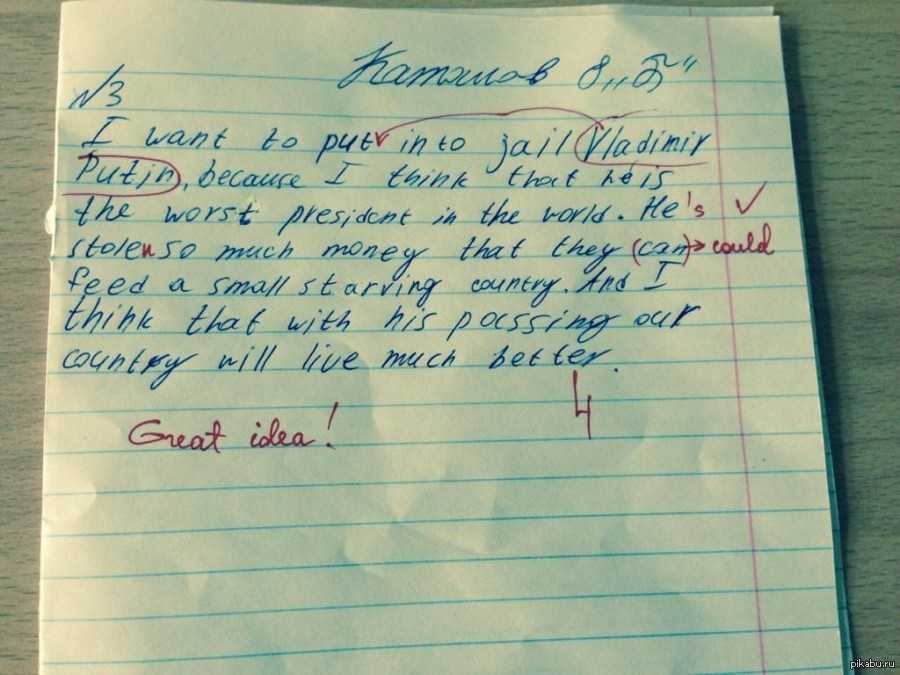 Катянов 8 „Б"
№3
I want to put into jail Vladimir
Putin, because I think that he is
the worst president in the world. He's
stolen so much money that they (can) → could
feed a small starving country. And I
think that with his pocssing our
country will live much better.
4
Great idea!
pikabu.ru